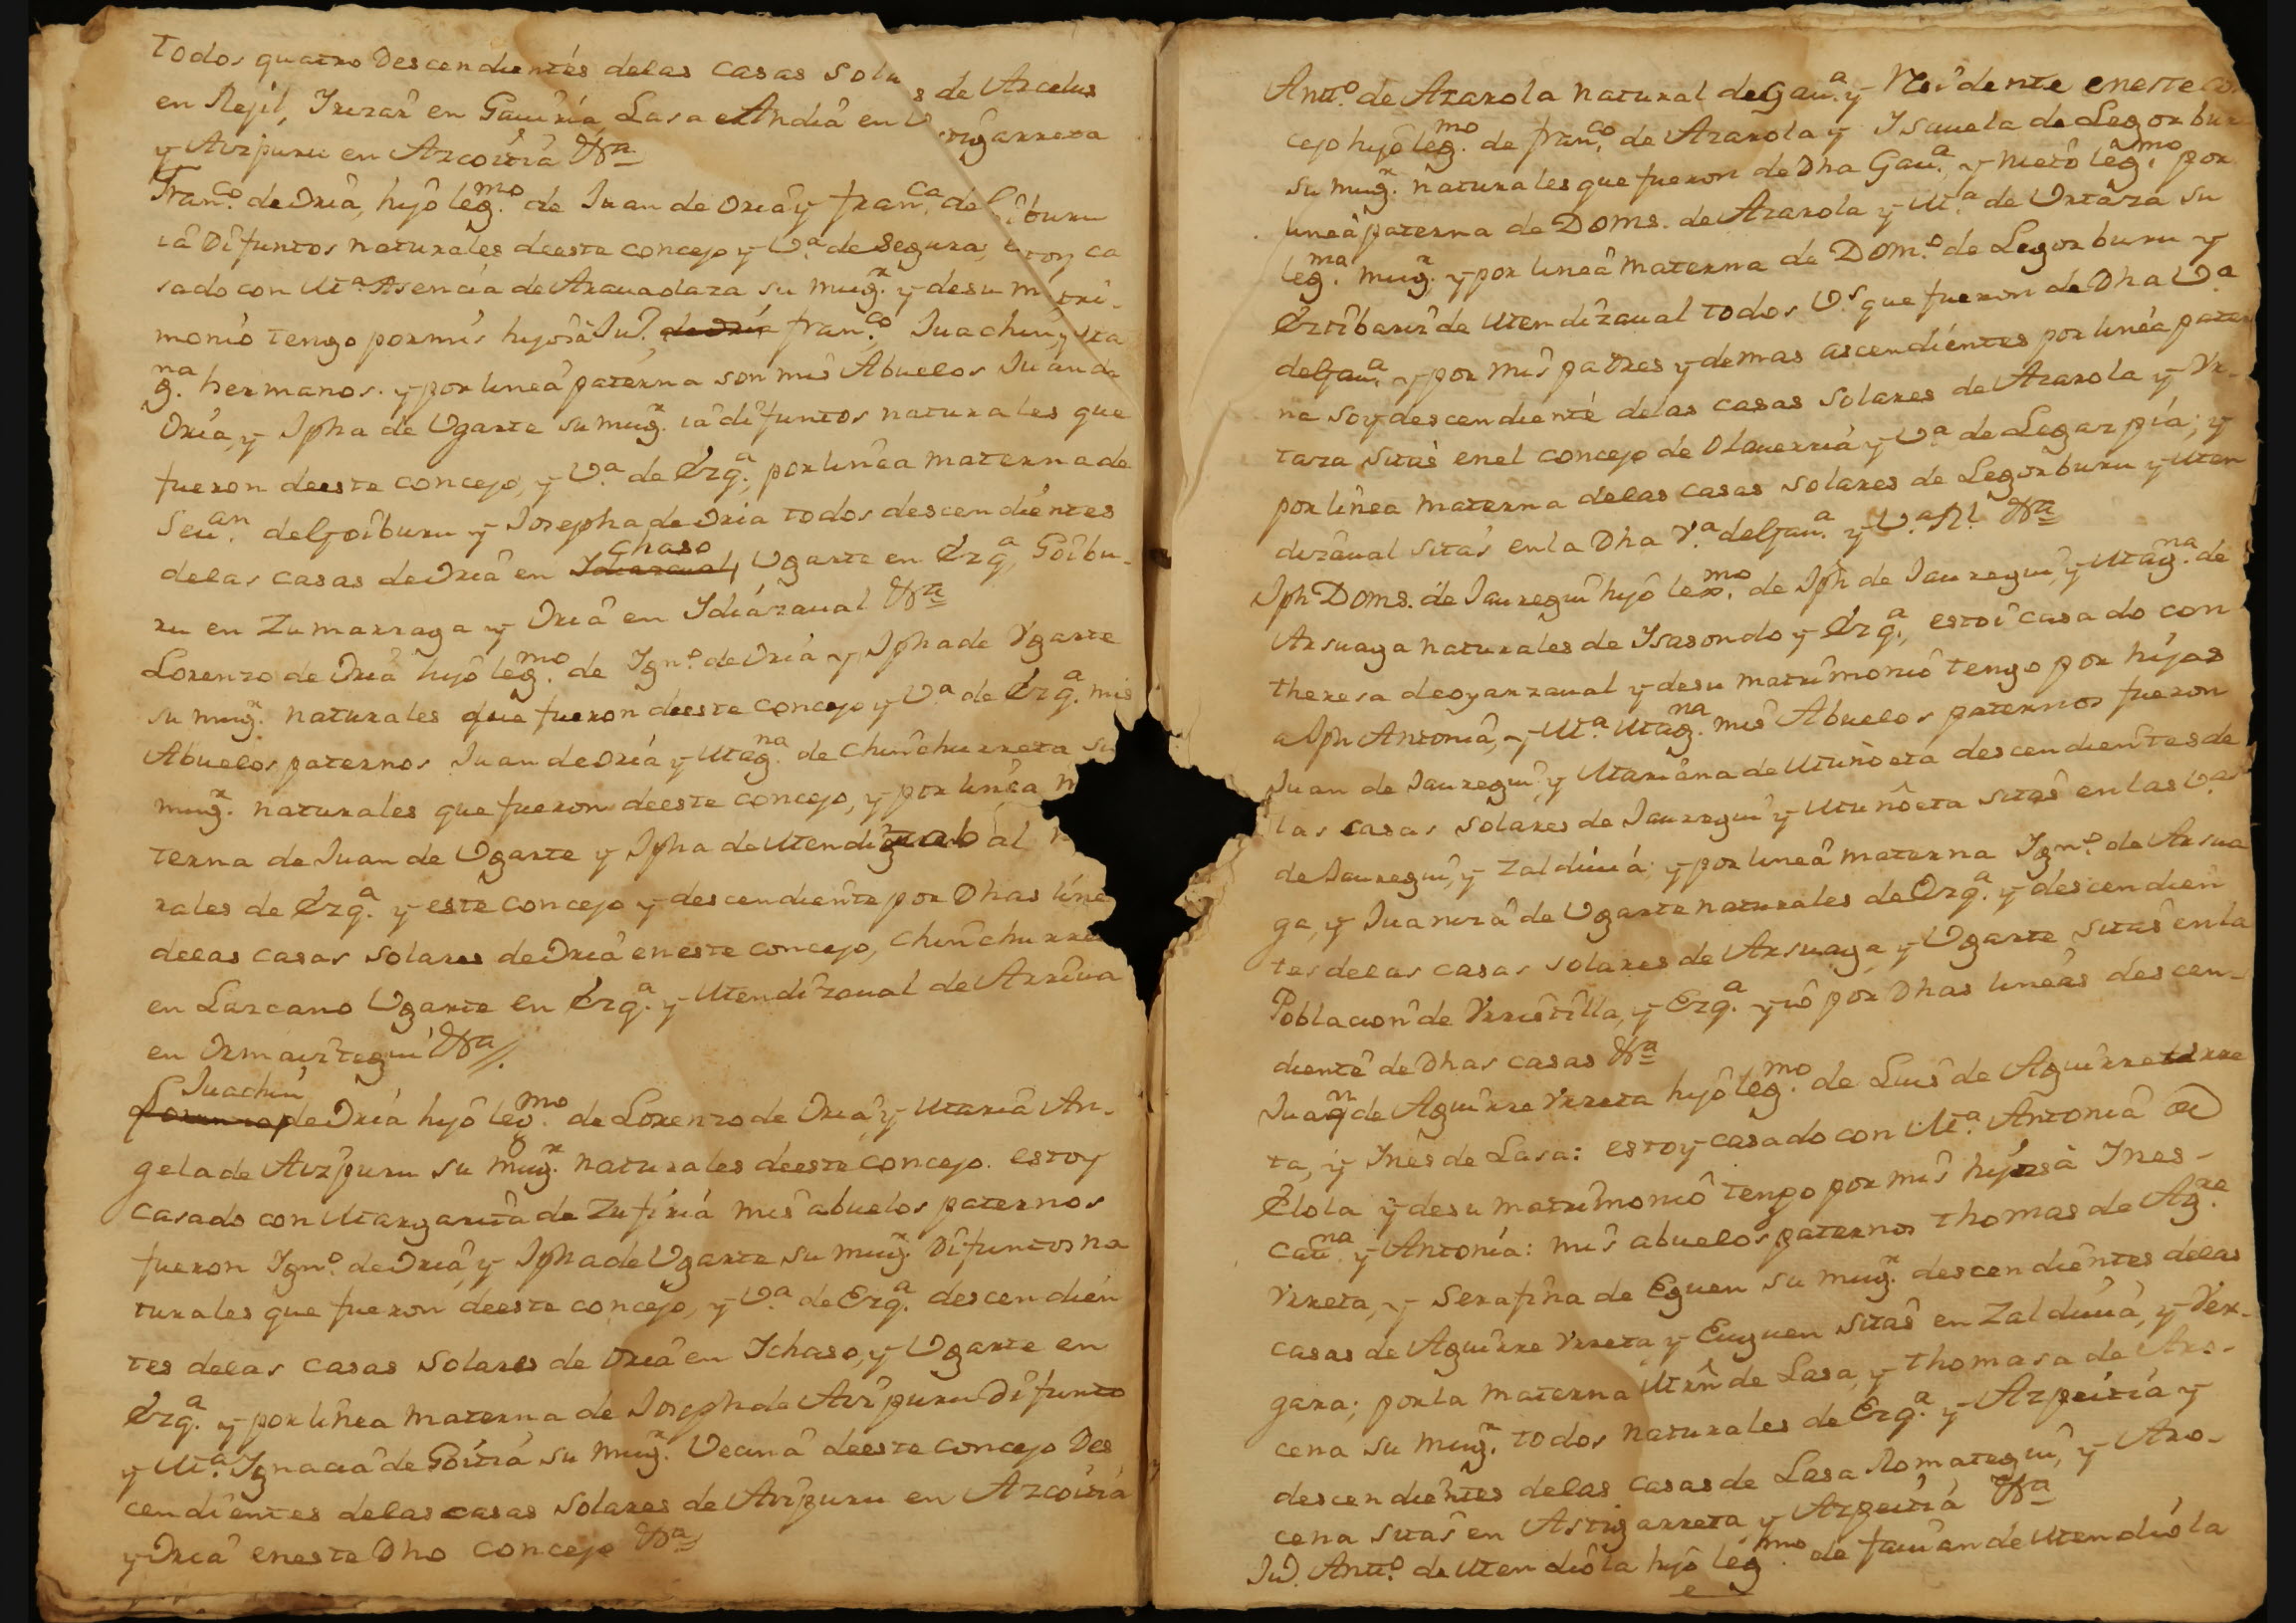 Todos quatro Descendientes delas Casas Sola s de Arcelus
en Rejil, Yrizar en Gauiria Lasa e Andia en V stigarreta
y Aizpuru en Azcoitia &ra
Franco. de Oria, hijo legmo. de Juan de Oria y franca. de Goiburu
ia Difuntos naturales deeste concejo y Va. de Segura, estoy ca
sado con Ma. Asencia de Arauadaza su mugr. y desu m tri-
monio tengo por mis hijos a Ju. de Oria franco. Juachin, y Ma
gna. hermanos. y por linea paterna son mis Abuelos Juan de
Oria, y Jpha de Ugarte su mugr. ia difuntos naturales que
fueron deeste concejo, y Va. de Ezqa., por linea materna de
Seuan. de Goiburu y Josepha de Oria todos descendientes
chaso
delas casas de Oria en Ydiazaual, Ugarte en Ezqa, Goibu-
ru en Zumarraga y Oria en Ydiazaual &ra
Lorenzo de Oria hijo legmo. de Igno. de Oria y Jpha de Ygarte
su mugr. naturales que fueron deeste concejo y Va de Ezqa. mis
Abuelos paternos Juan de Oria y Magna. de Chinchurreta su
mugr. naturales que fueron deeste concejo, y por linea m
terna de Juan de Ugarte y Jpha de Mendizabal al n
rales de Ezqa. y este concejo y descendiente por Dhas line
delas casas solares de Oria eneste concejo, Chinchurre
en Lazcano Ugarte en Ezqa. y Mendizaual de Arriua
en Ormaiztegui &ra//.
Juachin
Lorenzo de Oria hijo legmo. de Lorenzo de Oria, y Maria An-
gela de Aizpuru su mugr. naturales deeste concejo. estoy
casado con Margarita de Zufiria mis abuelos paternos
fueron Igno. de Oria, y Jpha de Ugarte su mugr. Difuntos na
turales que fueron deeste concejo, y Va. de Ezqa. descendien
tes delas casas Solares de Oria en Ychaso, y Ugarte en
Ezqa. y por linea materna de Joseph de Aizpuru Difunto
y Ma. Ygnacia de Goitia su mugr. Vecina deeste concejo Des
cendientes delas casas solares de Aizpuru en Azcoitia
y Oria eneste Dho concejo &ra
Antto. de Azarola natural de Gaua. y Residente eneste co
cejo hijo legmo. de franco. de Azarola y Ysauela de Legorburu
su mugr. naturales que fueron de Dha Gaua. y nieto legmo. por
linea paterna de Doms. de Azarola y Ma. de Urtaza su
legma. mugr. y por linea materna de Domo. de Legorburu y
Eztibariz de Mendizaual todos Vs que fueron de Dha Va.
de Gaua. y por mis padres y demas ascendientes por linea pater
na soy descendiente delas casas Solares de Azarola y Vr-
taza sitas enel concejo de Olauerria y Va. de Legazpia; y
por linea materna delas casas solares de Legorburu y Men
dizaual sitas enla Dha Va. de Gaua. y Va. Rl. &ra
Jph Doms. de Jauregui hijo lexmo. de Jph de Jauregui, y Magna. de
Arsuaga naturales de Ysasondo y Ezqa., estoi casado con
theresa deoyarzaual y desu matrimonio tengo por hijas
a Jph Antonia, y Ma. Magna. mis Abuelos paternos fueron
Juan de Jauregui, y Mariana de Muñoeta descendientes de
las casas solares de Jauregui y Muñoeta sitas en las Vas
de Jauregui, y Zalduiia; y por linea materna Igno. de Arsua
ga, y Juaniza de Ugarte naturales de Ezqa. y descendien
tes delas casas solares de Arsuaga y Ugarte sitas enla
Poblacion de Vrrestilla, y Ezqa. y io por Dhas lineas descen-
diente de Dhas casas &ra
Juan de Aguirre Vrreta hijo legmo. de Luis de Aguirre Urre
ta, y Ynes de Lasa: estoy casado con Ma. Antonia de
Elola y desu matrimonio tengo por mis hijos a Ynes-
Catna y Antonia: mis abuelos paternos thomas de Agre
Vrreta, y Serafina de Eguen su mugr. descendientes delas
casas de Aguirre Vrreta y Euguen sitas en Zalduuia, y Ver-
gara; por la materna Mrn de Lasa, y thomasa de Aro-
cena su mugr. todos naturales de Ezqa. y Azpeitia y
descendientes delas casas de Lasa Aomategui, y Aro-
cena sitas en Astigarreta y Azpeitia &ra
Ju. Antto. de Mendiola hijo legmo. de Juan de Mendiola